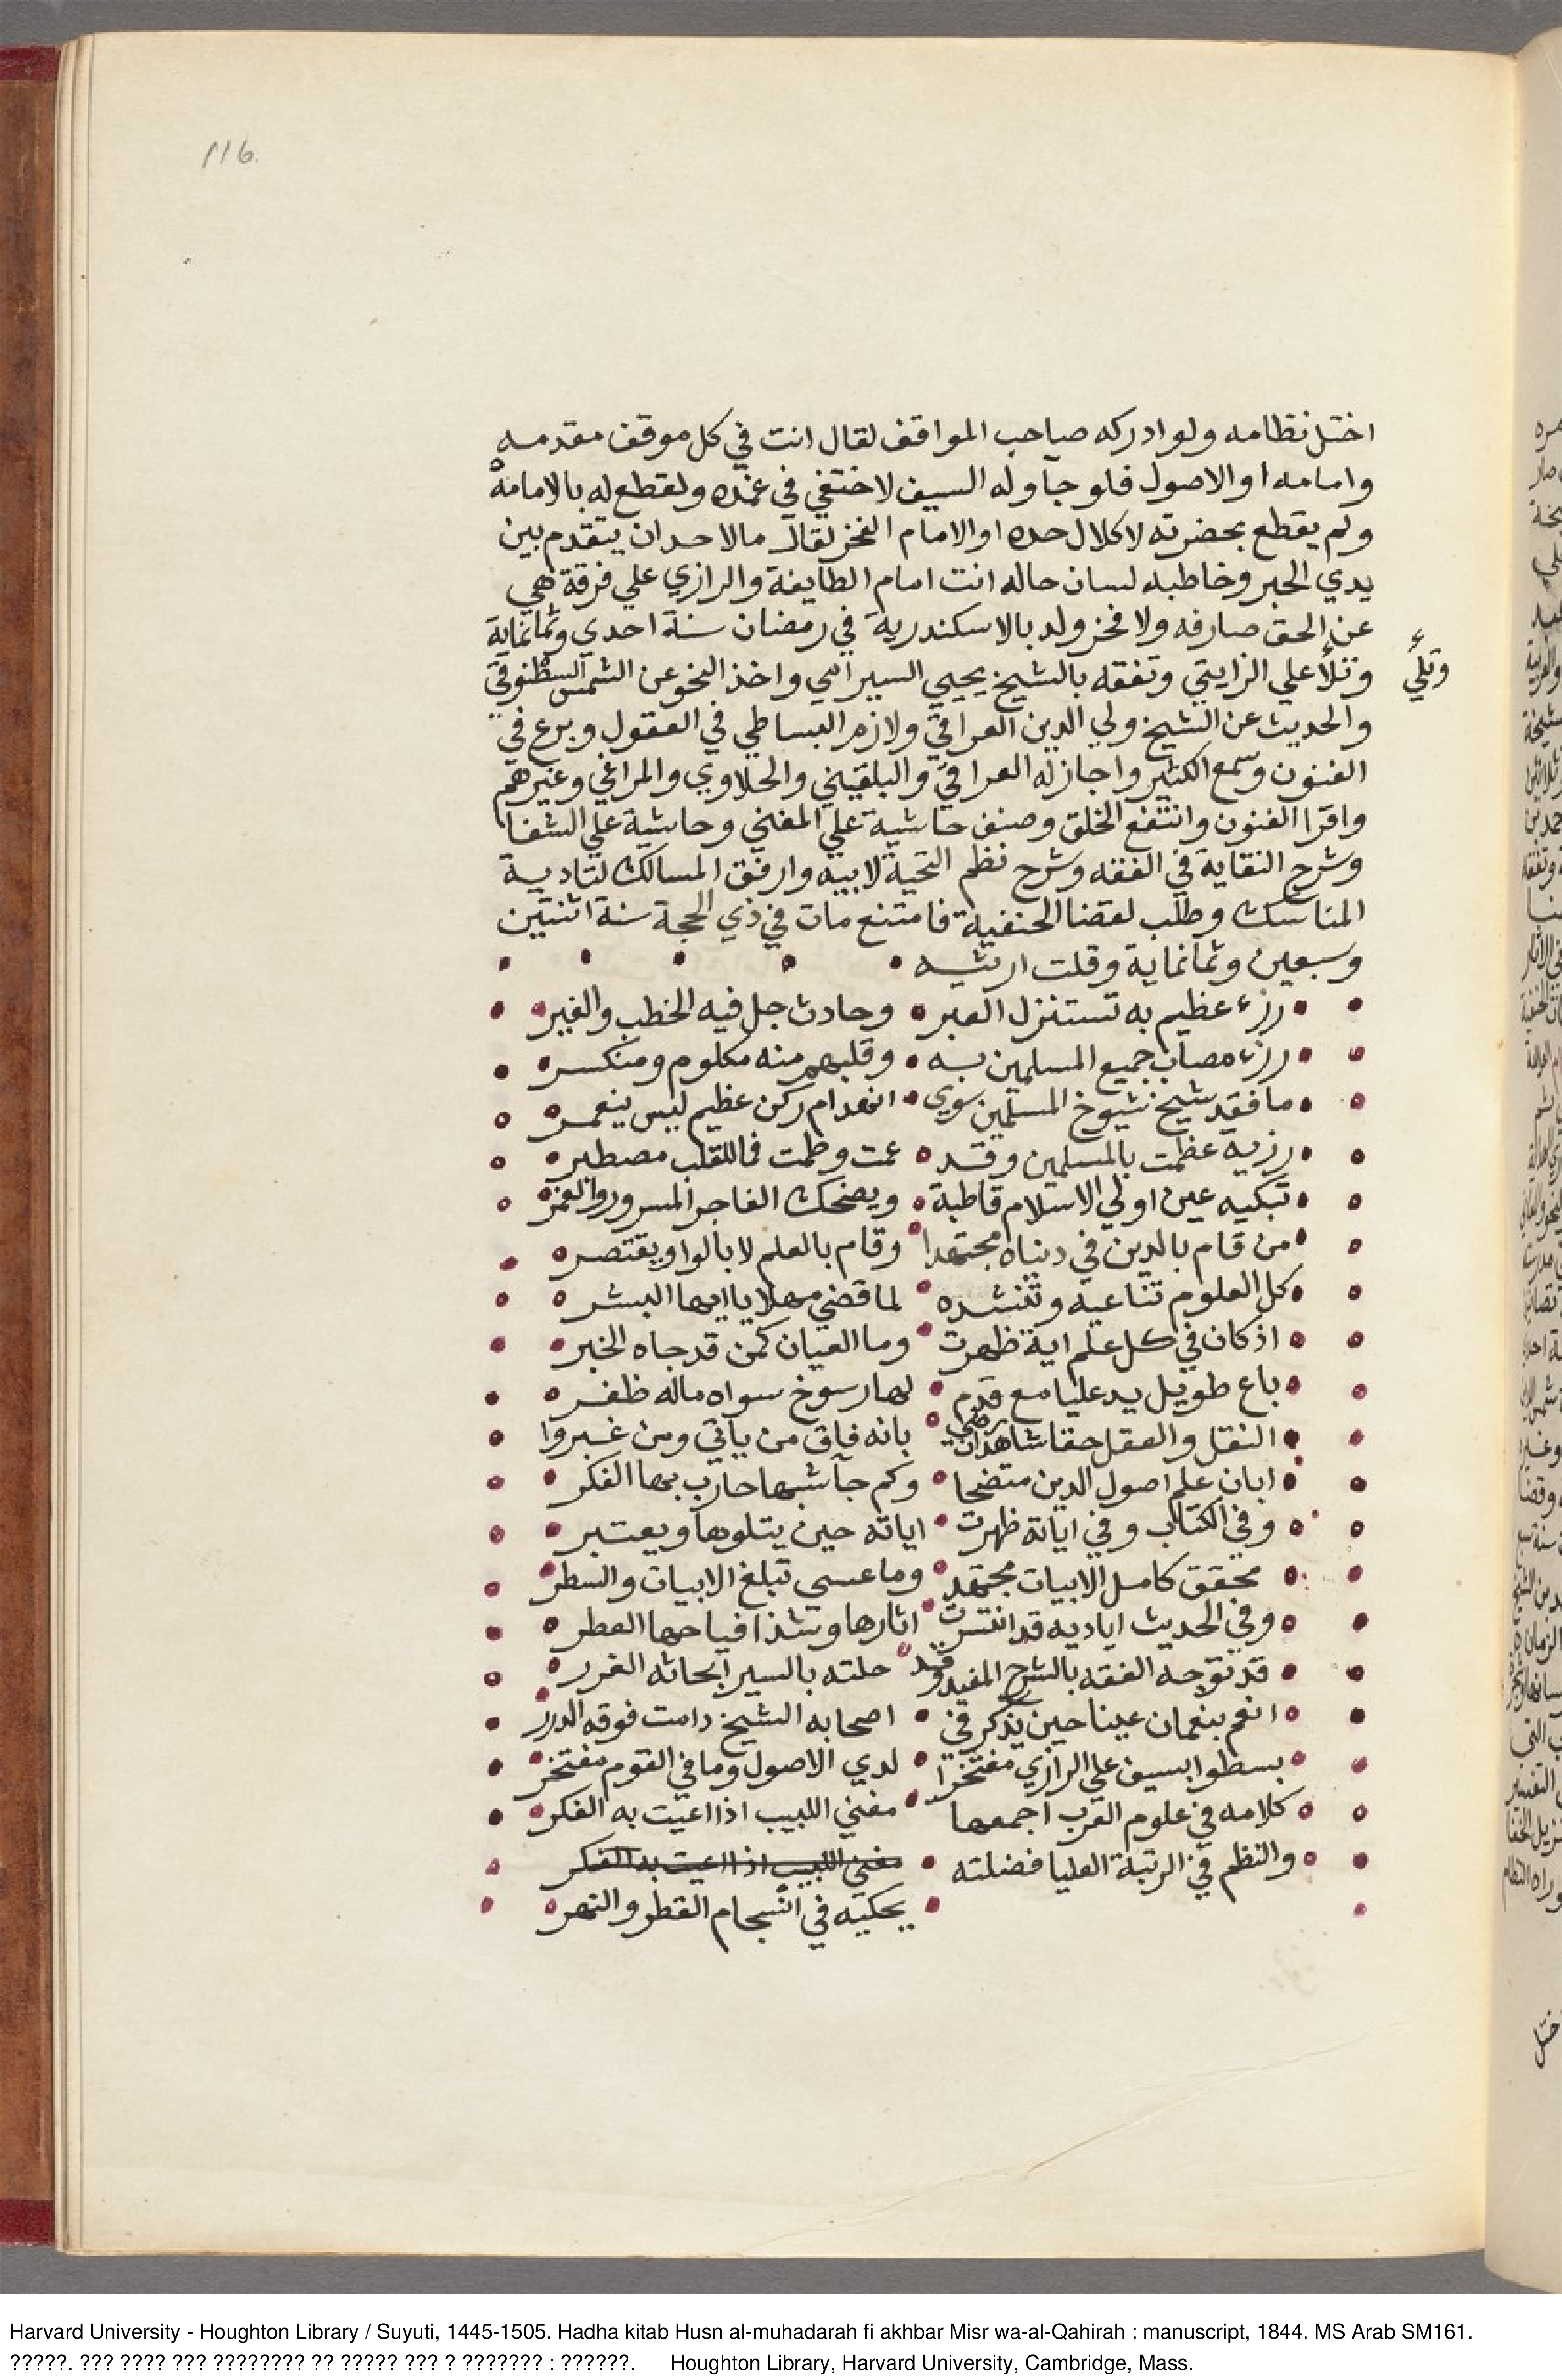 116.
اختل نظامه ولو ادركه صاحب المواقف لقال انت في كل موقف مقدمه
وامامه او الاصول فلو جاوله السيف لاختفي في غمده ولقطع له بالامامة
ولم يقطع بحضرته لاكلال حده او الامام الفخر لقال مالاحد ان يتقدم بين
يدي الحبر وخاطبه لسان حاله انت امام الطايفة والرازي علي فرقة هي
عن الحق صارفه ولا فخر ولد بالاسكندرية في رمضان سنة احدي وثمانماية
وتلأ علي الزاريتي وتفقه بالشيخ يحيي السيرامي واخذ النحو عن الشمس السطنوفي
وتليء
والحديث عن الشيخ ولي الدين العراقي ولازم البساطي في العقول وبرع في
الفنون وسمع الكثير واجاز له العراقي والبلقيني والحلاوي والمراغي وغيرهم
واقرا الفنون وانتفع الخلق وصنف حاشية علي المغني وحاشية علي الشفا
وشرح النقاية في الفقه وشرح نظم التحية لابيه وارفق المسالك لتادية
المناسك وطلب لقضا الحنفية فامتنع مات في ذي الحجة سنة اثنتين
وسبعين وثمانماية وقلت ارثيه
رزء عظيم به تستنزل العبر وحادث جل فيه الخطب والغير
رزء مصاب جميع المسلمين به وقلبهم منه مكلوم ومنكسر
ما فقد شيخ شيوخ المسلمين سوي انهدام ركن عظيم ليس ينعمر
رزية عظمت بالمسلمين وقد عمت وطمت فما للقلب مصطبر
تبكيه عين اولي الاسلام قاطبة ويضحك الفاجر المسرور والغمر
من قام بالدين في دنياه مجتهدا وقام بالعلم لا يالوا ويقتصر
كل العلوم تناعيه وتنشده لما قضي مهلا يا ايها البشر
اذ كان في كل علم اية ظهرت وما العيان كمن قد جاه الخبر
باع طويل يد عليا مع قدم لها رسوخ سواه ماله ظفر
النقل والعقل حقا شاهدان رضي بانه فاق من ياتي ومن غبروا
ابان علم اصول الدين متضحا وكم جا شبها حارب بها الفكر
وفي الكتاب وفي اياته ظهرت اياته حين يتلوها ويعتبر
محقق كامل الابيات مجتهد وما عسي تبلغ الابيات والسطر
وفي الحديث اياديه قد انتشرت اثارها وشذا فياحها العطر
قد توجه الفقه بالشرح المفيد وقد حلته بالسير ابحاثه الغرر
انعم بنعمان عينا حين يذكر في اصحابه الشيخ دامت فوقه الدرر
بسطوا بسيف علي الرازي مفتخرا لدي الاصول وما في القوم مفتخر
كلامه في علوم العرب اجمعها مغني اللبيب اذا اعيت به الفكر
والنظم في الرتبة العليا فضلته مغني اللبيب اذا اعيت به الفكر
يحكيه في انسجام القطر والنهر
Harvard University - Houghton Library / Suyuti, 1445-1505. Hadha kitab Husn al-muhadarah fi akhbar Misr wa-al-Qahirah : manuscript, 1844. MS Arab SM161.
?????. ??? ???? ??? ???????? ?? ????? ??? ? ??????? : ??????. Houghton Library, Harvard University, Cambridge, Mass.